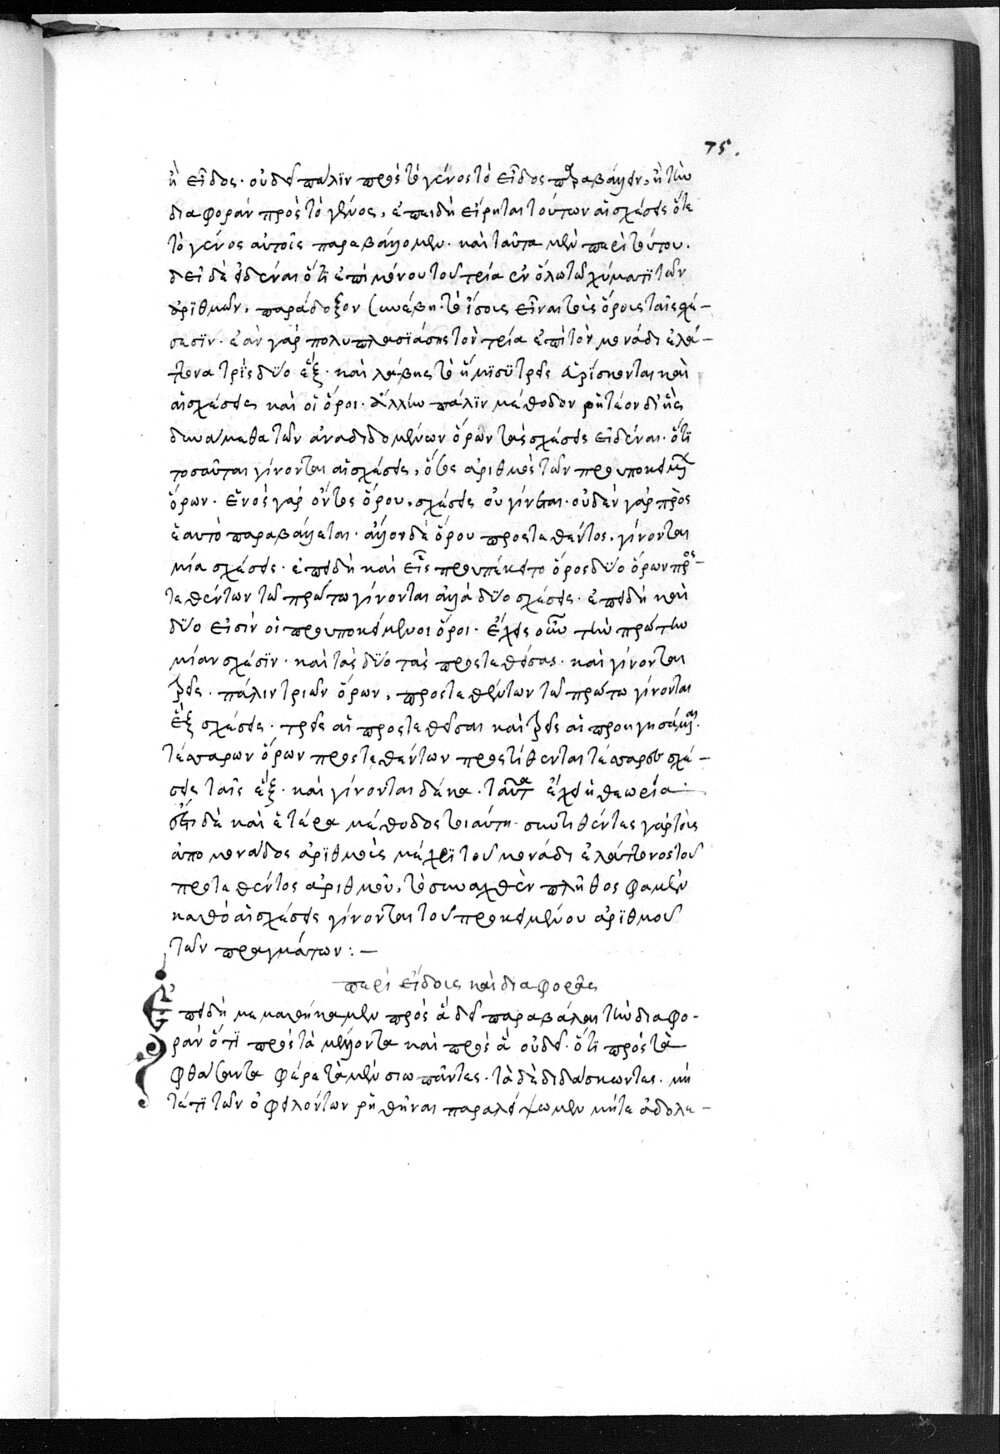 75.
ἢ εἶδος· οὐ δεῖ πάλϊν πρὸς τὸ γένος τὸ εἶδος παραβάλλειν, ἢ τὴν
διαφορὰν πρὸς τὸ γένος, ἐπειδὴ εἴρηται τούτων αἱ σχέσεις ὅτε
τὸ γένος αὐτοῖς παραβάλλομεν· καὶ ταῦτα μὲν περὶ τούτου.
δεῖ δὲ εἰδέναι ὅτι ἐπὶ μόνου τοῦ τρία ἐν ὅλω τῶ χύματι τῶν
ἀρϊθμῶν, παράδοξον συνέβη τὸ ἴσους εἶναι τοὺς ὅρους ταῖς σχέ-
σεσϊν· ἐὰν γὰρ πολυπλασϊάσης τὸν τρία ἐπὶ τὸν μονάδι ἐλά-
ττονα τρὶς δύο ἕξ· καὶ λάβης τὸ ἥμϊσϋ τρεῖς εὑρίσκονται καὶ
αἱ σχέσεις καὶ οἱ ὅροι· ἄλλην πάλϊν μέθοδον ῥητέον δι' ἧς
δυνάμεθα τῶν ἀναδιδομένων ὅρων τὰς σχέσεις εἰδέναι· ὅτι
τοσαῦται γίνονται αἱ σχέσεις, ὅσος ἀριθμὸς τῶν προϋποκειμένων
ὅρων· ἑνὸς γὰρ ὄντος ὅρου, σχέσις οὐ γίνεται· οὐδὲν γὰρ πρὸς
ἑαυτὸ παραβάλλεται· ἄλλου δὲ ὅρου προστεθέντος, γίνονται
μία σχέσις· ἐπειδὴ καὶ εἷς προϋπέκειτο ὅρος δύο ὅρων προσ-
τεθέντων τῶ πρώτω γίνονται ἀλλὰ δύο σχέσεις· ἐπειδὴ καὶ
δύο εἰσὶν οἱ προϋποκείμενοι ὅροι· ἔχεις οὖν τὴν πρώτην
μίαν σχέσϊν· καὶ τὰς δύο τὰς προστεθείσας· καὶ γίνονται
τρεῖς· πάλιν τριῶν ὅρων, προστεθέντων τῶ πρώτω γίνονται
ἓξ σχέσεις· τρεῖς αἱ προστεθεῖσαι καὶ τρεῖς αἱ προηγησάμεναι.
τεσσάρων ὅρων προστεθέντων προστίθενται τέσσαρες σχέ-
σεις ταῖς ἕξ· καὶ γίνονται δέκα· ταῦτα ἔχει ἡ θεωρία·
ἔστι δὲ καὶ ἑτέρα μέθοδος τοιαύτη· συντιθέντες γὰρ τοὺς
ἀπο μονάδος ἀρϊθμοὺς μέχρϊ τοῦ μονάδι ἐλάττονος τοῦ
προτεθέντος ἀριθμοῦ, τὸ συναχθὲν πλῆθος φαμὲν
καθὸ αἱ σχέσεις γίνονται τοῦ προκειμένου ἀρϊθμοῦ
τῶν πραγμάτων :—
περὶ εἴδους καὶ διαφορᾶς
Ἐπειδὴ μεμαθήκαμεν πρὸς ἃ δεῖ παραβάλλειν τὴν διαφο-
ρὰν ὅτι πρὸς τὰ μένοντα καὶ πρὸς ἃ οὐ δεῖ· ὅτι πρὸς τὰ
φθάσαντα φέρε τὰ μὲν σιωπῶντες· τὰ δὲ διδάσκοντες· μή
τέ τι τῶν ὀφειλόντων ῥηθῆναι παραλείψωμεν μήτε ἀδολε-